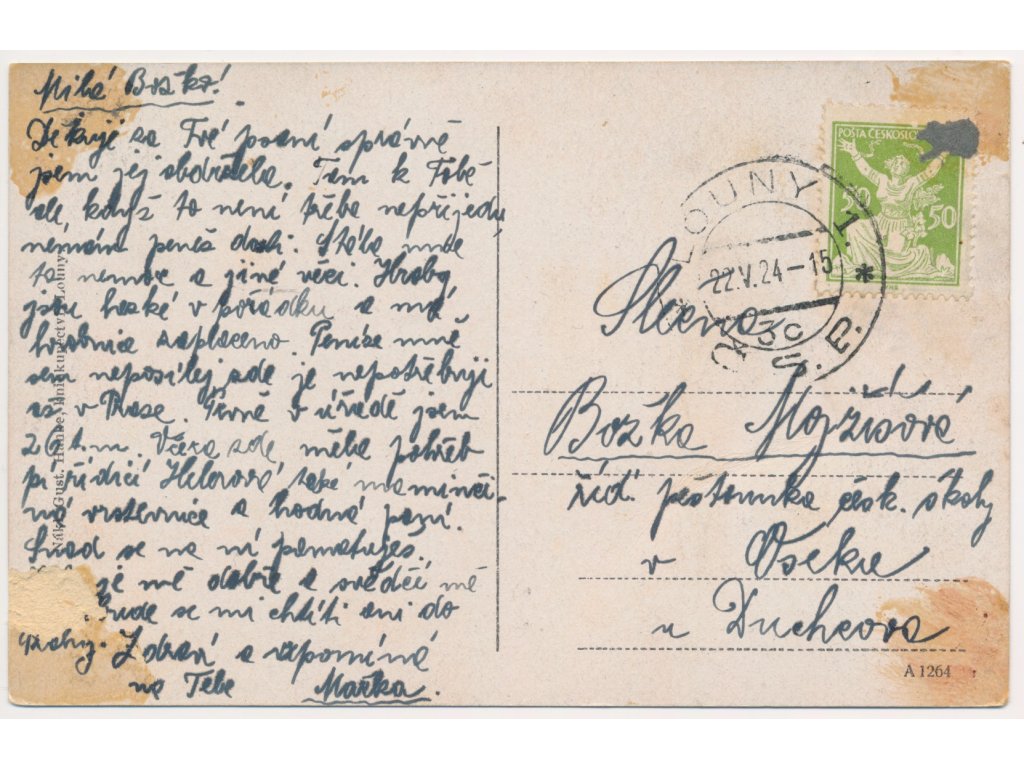 Milá Božko!
Děkuji za Tvé psaní správně
jsem jej obdržela. Tam k Tobě
ale, když to není třeba nepřijedu
nemám peněz dosti. Stála mne
ta nemoc a jiné věci. Hroby
jsou hezké v pořádku a má
hrobnice zaplaceno. Peníze mně
sem neposílej zde je nepotřebuji
až v Praze. Prvně v úřadě jsem
26 t.m. Včera zde měla pohřeb
pí řídící Helerová také maminči-
ná vrstevnice a hodná paní.
Snad se na ní pamatuješ.
je mě dobře a svědčí mě
Bude se mi chtíti ani do
Prahy. Zdraví a vzpomíná
na Tebe Mařka.
Nákl. Gust. Hanke, knihkupectví, Louny
POŠTA ČESKOSLO
50
LOUNY 1.
22.V.24-15
*
3c
Slečna
Božka Mojžíšová
říd. pěstounka česk. školy
v Oseku
u Duchcova
A 1264